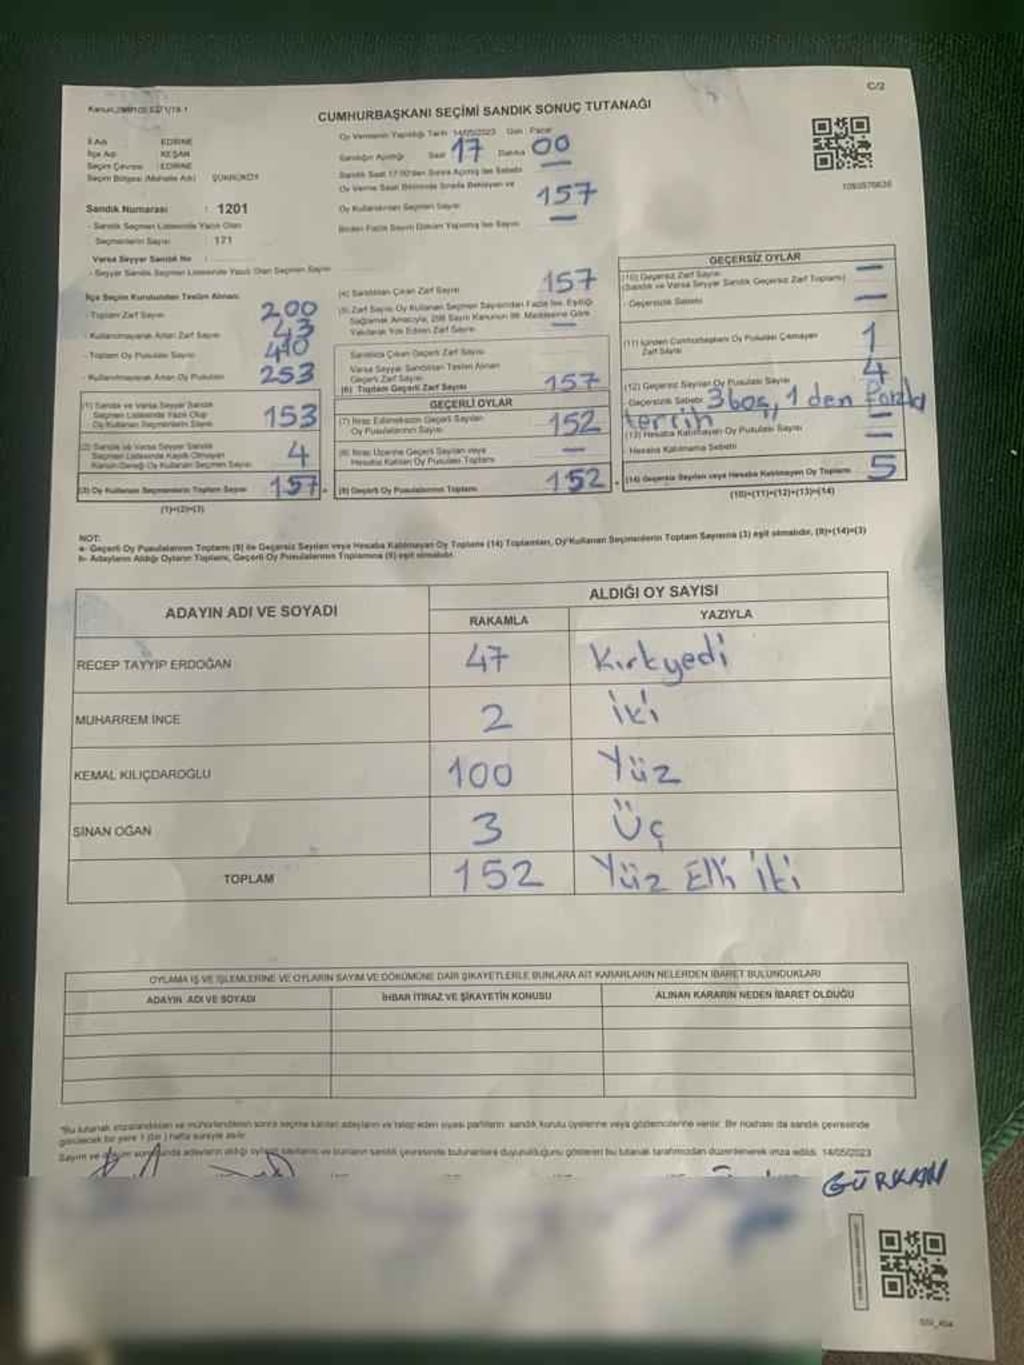 C/2
CUMHURBAŞKANI SEÇİMİ SANDIK SONUÇ TUTANAĞI
İl Adı : EDİRNE
İlçe Adı : KEŞAN
Seçim Çevresi : EDİRNE
Seçim Bölgesi (Mahalle Adı) :
Sandık Numarası : 1201
- Sandık Seçmen Listesinde Yazılı Olan
Seçmenlerin Sayısı : 171
Varsa Seyyar Sandık No :
- Seyyar Sandık Seçmen Listesinde Yazılı Olan Seçmen Sayısı
Oy Vermenin Yapıldığı Tarih 14/05/2023 Gün : Pazar
Sandığın Açıldığı Saat 17 Dakika 00
Sandık Saat 17:00'den Sonra Açılmış İse Sebebi
Oy Verme Saati Bitiminde Sırada Bekleyen ve
Oy Kullandırılan Seçmen Sayısı 157
Birden Fazla Sayım Döküm Yapılmış İse Sayısı —
İlçe Seçim Kurulundan Teslim Alınan
- Toplam Zarf Sayısı 200
- Kullanılmayarak Artan Zarf Sayısı 43
- Toplam Oy Pusulası Sayısı 410
- Kullanılmayarak Artan Oy Pusulası 253
(1) Sandık ve Varsa Seyyar Sandık
Seçmen Listesinde Yazılı Olup
Oy Kullanan Seçmenlerin Sayısı 153
(2) Sandık ve Varsa Seyyar Sandık
Seçmen Listesinde Kaydı Olmayan
Kanun Gereği Oy Kullanan Seçmen Sayısı 4
(3) Oy Kullanan Seçmenlerin Toplam Sayısı 157
(1)+(2)=(3)
(4) Sandıktan Çıkan Zarf Sayısı 157
(5) Zarf Sayısı Oy Kullanan Seçmen Sayısından Fazla İse, Eşitliği
Sağlamak Amacıyla, 298 Sayılı Kanunun 98. Maddesine Göre
Yakılarak Yok Edilen Zarf Sayısı —
Sandıkta Çıkan Geçerli Zarf Sayısı
Varsa Seyyar Sandıktan Teslim Alınan
Geçerli Zarf Sayısı
(6) Toplam Geçerli Zarf Sayısı 157
GEÇERLİ OYLAR
(7) İtiraz Edilmeksizin Geçerli Sayılan
Oy Pusulalarının Sayısı 152
(8) İtiraz Üzerine Geçerli Sayılan veya
Hesaba Katılan Oy Pusulaları Toplamı —
(9) Geçerli Oy Pusulalarının Toplamı 152
GEÇERSİZ OYLAR
(10) Geçersiz Zarf Sayısı
(Sandık ve Varsa Seyyar Sandık Geçersiz Zarf Toplamı) —
- Geçersizlik Sebebi —
(11) İçinden Cumhurbaşkanı Oy Pusulası Çıkmayan
Zarf Sayısı 1
(12) Geçersiz Sayılan Oy Pusulası Sayısı 4
- Geçersizlik Sebebi 3 boş, 1 den Fazla
tercih
(13) Hesaba Katılmayan Oy Pusulası Sayısı —
Hesaba Katılmama Sebebi —
(14) Geçersiz Sayılan veya Hesaba Katılmayan Oy Toplamı 5
(10)+(11)+(12)+(13)=(14)
NOT:
a- Geçerli Oy Pusulalarının Toplamı (9) ile Geçersiz Sayılan veya Hesaba Katılmayan Oy Toplamı (14) Toplamları, Oy Kullanan Seçmenlerin Toplam Sayısına (3) eşit olmalıdır, (9)+(14)=(3)
b- Adayların Aldığı Oyların Toplamı, Geçerli Oy Pusulalarının Toplamına (9) eşit olmalıdır.
ADAYIN ADI VE SOYADI
ALDIĞI OY SAYISI
RAKAMLA YAZIYLA
RECEP TAYYİP ERDOĞAN 47 Kırkyedi
MUHARREM İNCE 2 İki
KEMAL KILIÇDAROĞLU 100 Yüz
SİNAN OĞAN 3 Üç
TOPLAM 152 Yüz Elli İki
OYLAMA İŞ VE İŞLEMLERİNE VE OYLARIN SAYIM VE DÖKÜMÜNE DAİR ŞİKAYETLERLE BUNLARA AİT KARARLARIN NELERDEN İBARET BULUNDUKLARI
ADAYIN ADI VE SOYADI İHBAR İTİRAZ VE ŞİKAYETİN KONUSU ALINAN KARARIN NEDEN İBARET OLDUĞU
*Bu tutanak imzalandıktan ve mühürlendikten sonra seçime katılan adayların ve talep eden siyasi partilerin sandık kurulu üyelerine veya gözlemcilerine verilir. Bir nüshası da sandık çevresinde
görülecek bir yere 1 (bir) hafta süreyle asılır.
GÜRKAN